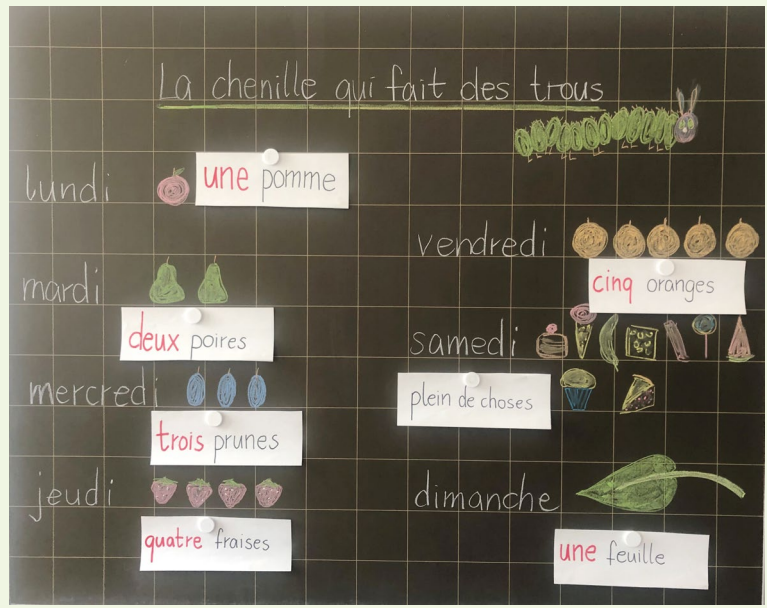 La chenille qui fait des trous
lundi
une pomme
mardi
deux poires
mercredi
trois prunes
jeudi
quatre fraises
vendredi
cinq oranges
samedi
plein de choses
dimanche
une feuille